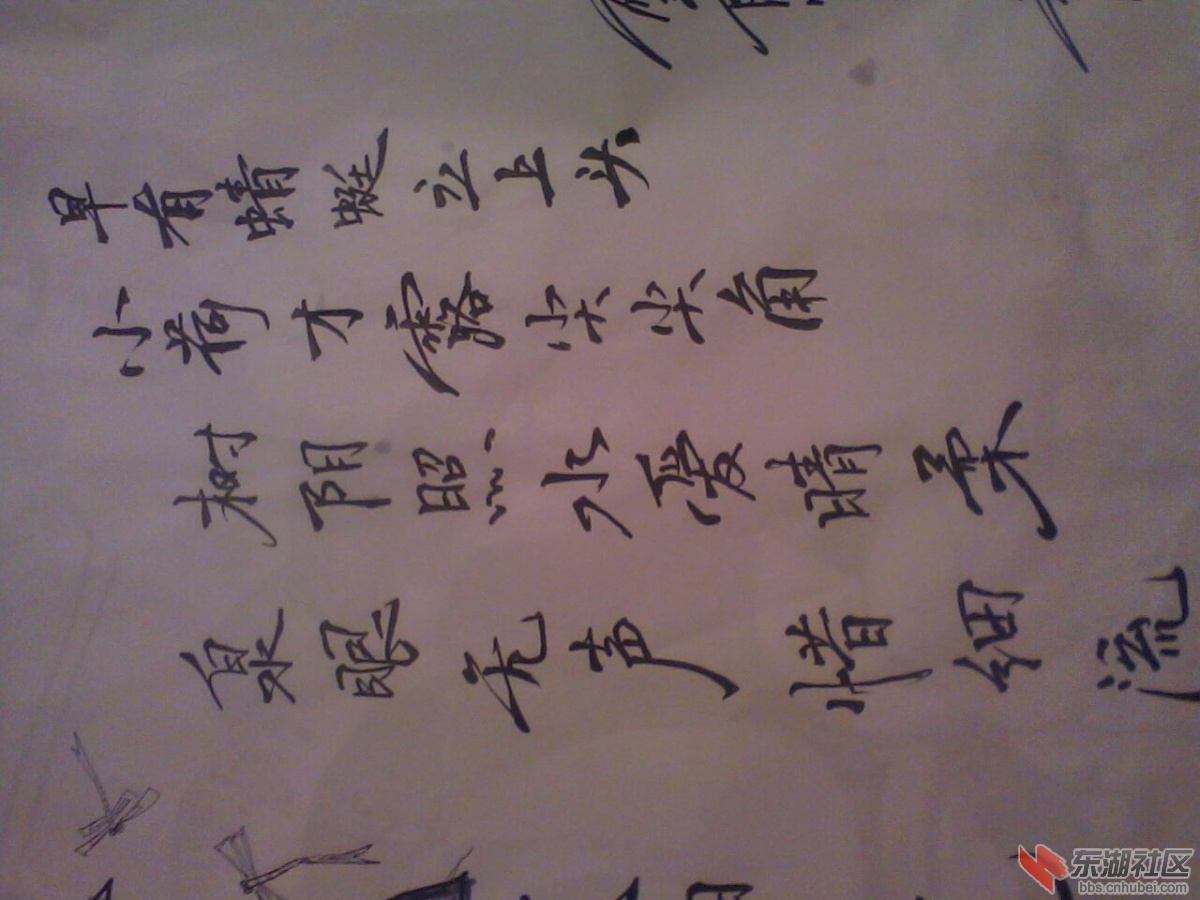 泉眼无声惜细流
树阴照水爱晴柔
小荷才露尖尖角
早有蜻蜓立上头
东湖社区
bbs.cnhubei.com